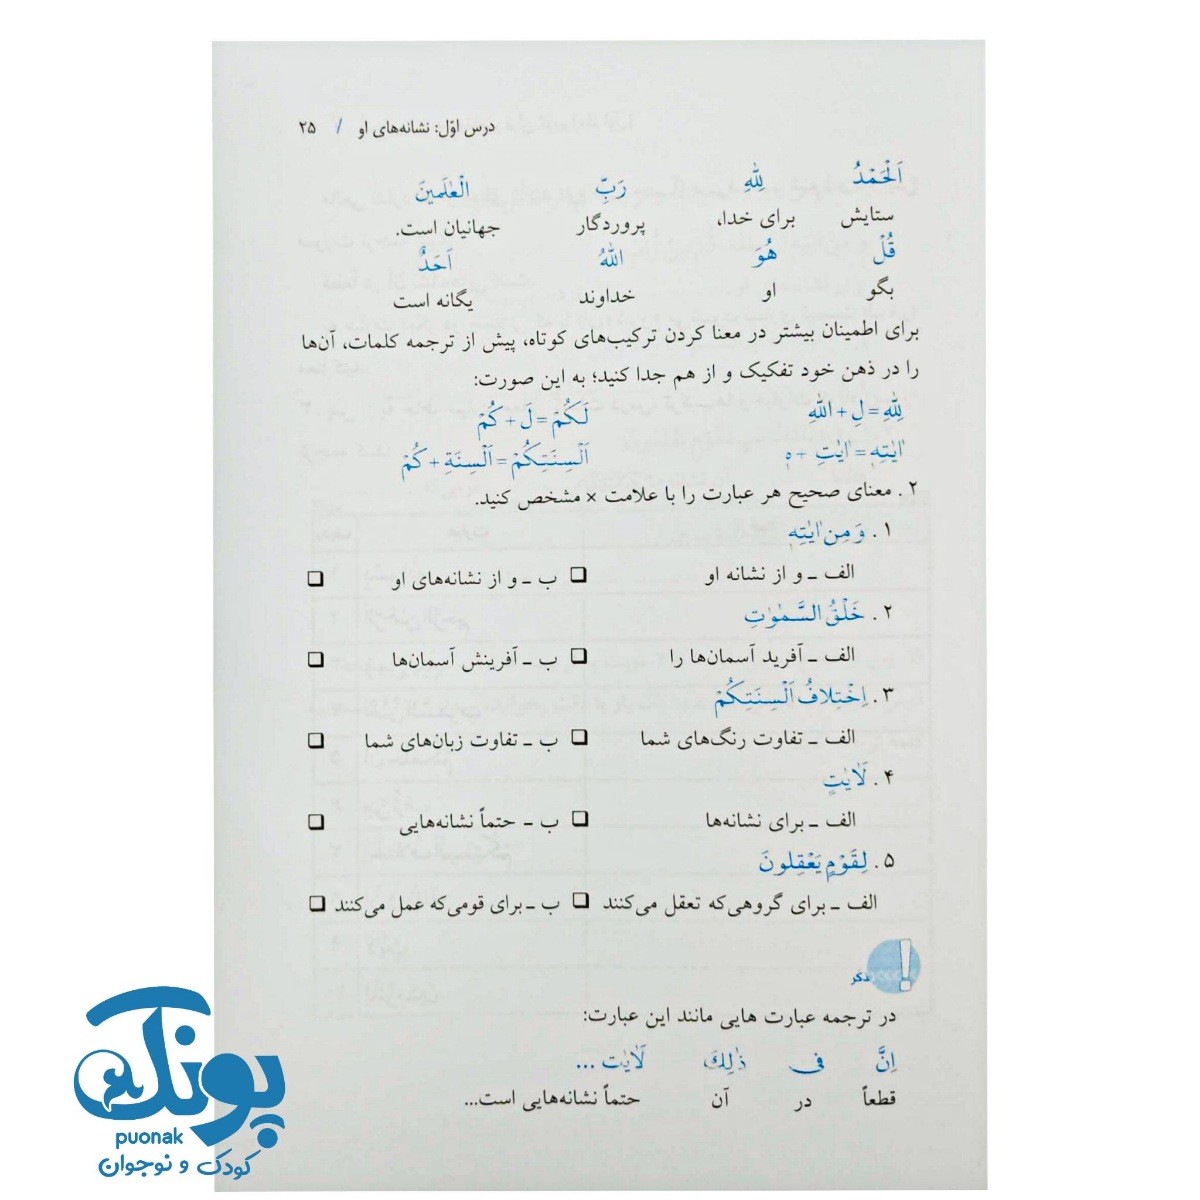 درس اوّل: نشانه‌های او / ۲۵
اَلْحَمْدُ لِلّٰهِ رَبِّ الْعٰلَمینَ
ستایش برای خدا، پروردگار جهانیان است.
قُلْ هُوَ اللّٰهُ اَحَدٌ
بگو او خداوند یگانه است
برای اطمینان بیشتر در معنا کردن ترکیب‌های کوتاه، پیش از ترجمه کلمات، آن‌ها
را در ذهن خود تفکیک و از هم جدا کنید؛ به این صورت:
لِلّٰهِ = لِ + اللّٰهِ لَکُمْ = لَ + کُمْ
اٰیٰتِهٖ = اٰیٰتِ + هٖ اَلْسِنَتِکُمْ = اَلْسِنَةِ + کُمْ
۲ . معنای صحیح هر عبارت را با علامت × مشخص کنید.
۱ . وَ مِن اٰیٰتِهٖ
الف ـ و از نشانه او ❑ ب ـ و از نشانه‌های او ❑
۲ . خَلْقُ السَّمٰوٰتِ
الف ـ آفرید آسمان‌ها را ❑ ب ـ آفرینش آسمان‌ها ❑
۳ . اِخْتِلافُ اَلْسِنَتِکُمْ
الف ـ تفاوت رنگ‌های شما ❑ ب ـ تفاوت زبان‌های شما ❑
۴ . لَاٰیٰتٍ
الف ـ برای نشانه‌ها ❑ ب ـ حتماً نشانه‌هایی ❑
۵ . لِقَوْمٍ یَعْقِلونَ
الف ـ برای گروهی‌که تعقل می‌کنند ❑ ب ـ برای قومی‌که عمل می‌کنند ❑
!
در ترجمه عبارت هایی مانند این عبارت:
اِنَّ فی ذٰلِکَ لَاٰیٰت ...
قطعاً در آن حتماً نشانه‌هایی است...
پونک
puonak
کودک و نوجوان